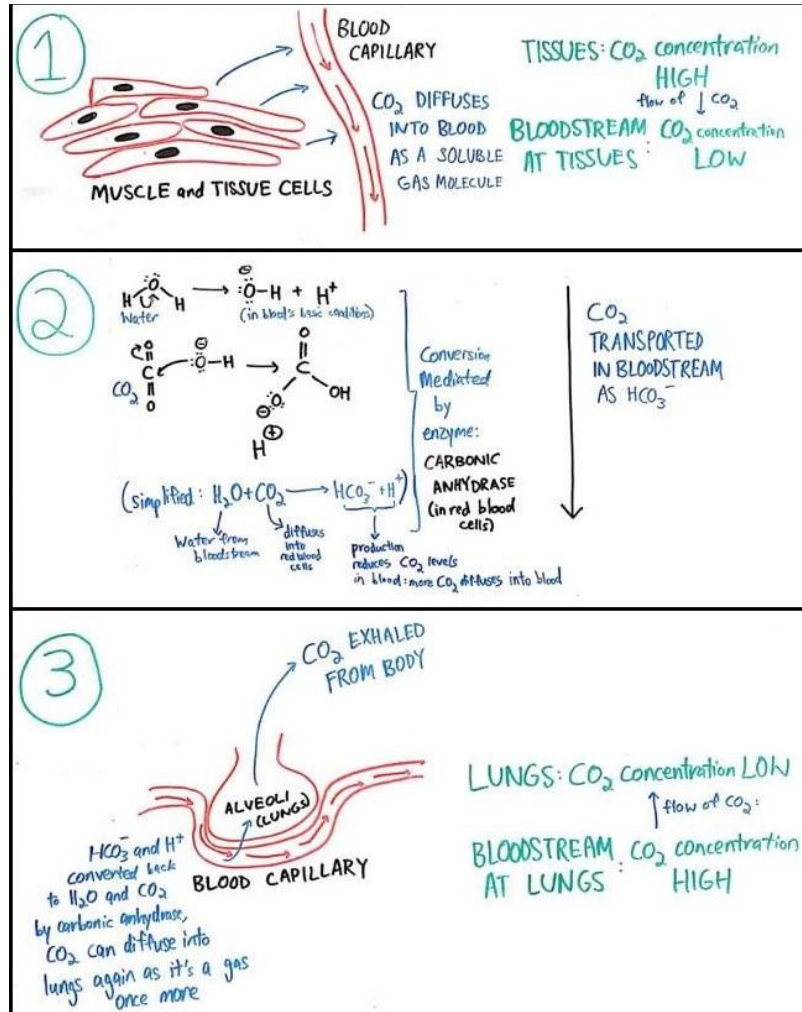 1
BLOOD
CAPILLARY
MUSCLE and TISSUE CELLS
CO₂ DIFFUSES
INTO BLOOD
AS A SOLUBLE
GAS MOLECULE
TISSUES: CO₂ concentration
HIGH
flow of ↓ CO₂
BLOODSTREAM CO₂ concentration
AT TISSUES : LOW
2
H O H → ⊖ :O-H + H⁺
Water (in blood's basic conditions)
O C O CO₂ :O-H → O C O⊖ OH
H⊕
(simplified: H₂O+CO₂ → HCO₃⁻+H⁺)
Water from
bloodstream
diffuses
into
red blood
cells
production
reduces CO₂ levels
in blood: more CO₂ diffuses into blood
Conversion
Mediated
by
enzyme:
CARBONIC
ANHYDRASE
(in red blood
cells)
CO₂
TRANSPORTED
IN BLOODSTREAM
AS HCO₃⁻
3
CO₂ EXHALED
FROM BODY
ALVEOLI
(LUNGS)
BLOOD CAPILLARY
HCO₃⁻ and H⁺
converted back
to H₂O and CO₂
by carbonic anhydrase,
CO₂ can diffuse into
lungs again as it's a gas
once more
LUNGS: CO₂ concentration LOW
↑ flow of CO₂:
BLOODSTREAM : CO₂ concentration
AT LUNGS HIGH